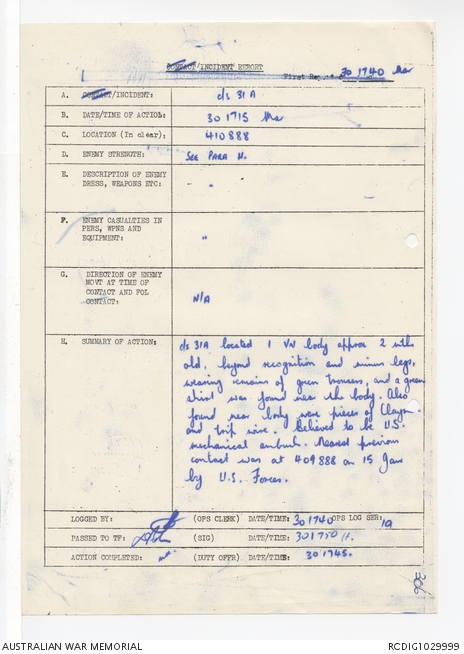 CONTACT/INCIDENT REPORT
First Rep 301740 Mar
A. CONTACT/INCIDENT: c/s 31A
B. DATE/TIME OF ACTION: 301715 Mar
C. LOCATION (In clear): 410888
D. ENEMY STRENGTH: See PARA H.
E. DESCRIPTION OF ENEMY "
DRESS, WEAPONS ETC:
F. ENEMY CASUALTIES IN "
PERS, WPNS AND
EQUIPMENT:
G. DIRECTION OF ENEMY
MOVT AT TIME OF
CONTACT AND FOL N/A
CONTACT:
H. SUMMARY OF ACTION: c/s 31A located 1 VN body approx 2 mths
old, beyond recognition and minus legs,
wearing remains of green trousers, and a green
shirt was found near the body. Also
found near body were pieces of Claym
and trip wire. Believed to be U.S.
mechanical ambush. Nearest previous
contact was at 409888 on 15 Jan
by U.S. Forces.
LOGGED BY: (OPS CLERK) DATE/TIME: 301740 OPS LOG SER: 19
PASSED TO TF: (SIG) DATE/TIME: 301750 H.
ACTION COMPLETED: (DUTY OFFR) DATE/TIME: 301745.
306
AUSTRALIAN WAR MEMORIAL RCDIG1029999